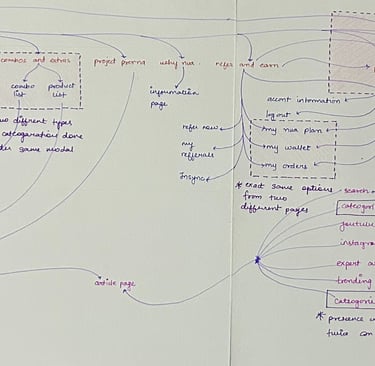 combos and extras
project prerna
why nua
refer and earn
combo list
product list
information page
two diffrent types
categarization done
same modal
refer now
my referrals
Insync
accont information
logout
my nua plan
my wallet
my orders
* exact same options
from two
different pages
search
categori
youtub
instagra
expert a
trending
categorie
* presence
twice con
article page